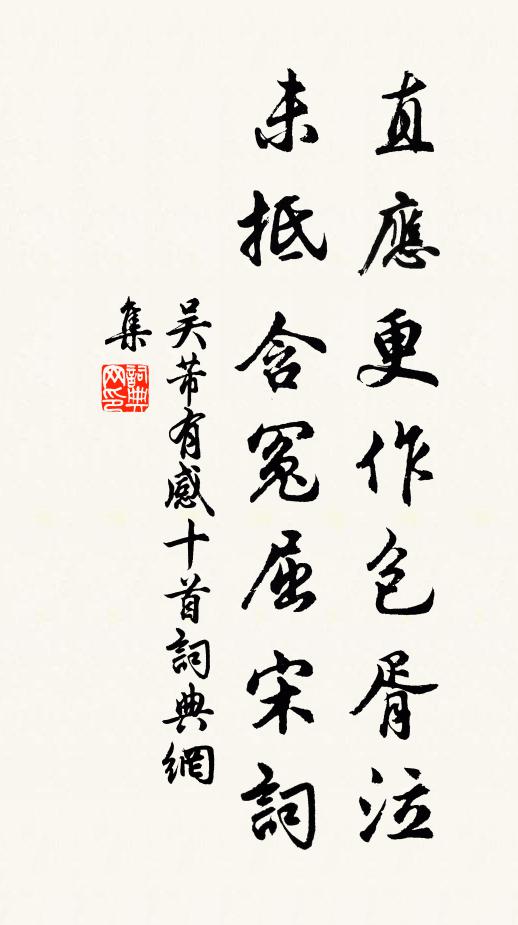 直應更作包胥泣
未抵含冤屈宋詞
吴芾有感十首詞典網
集
詞典
网印